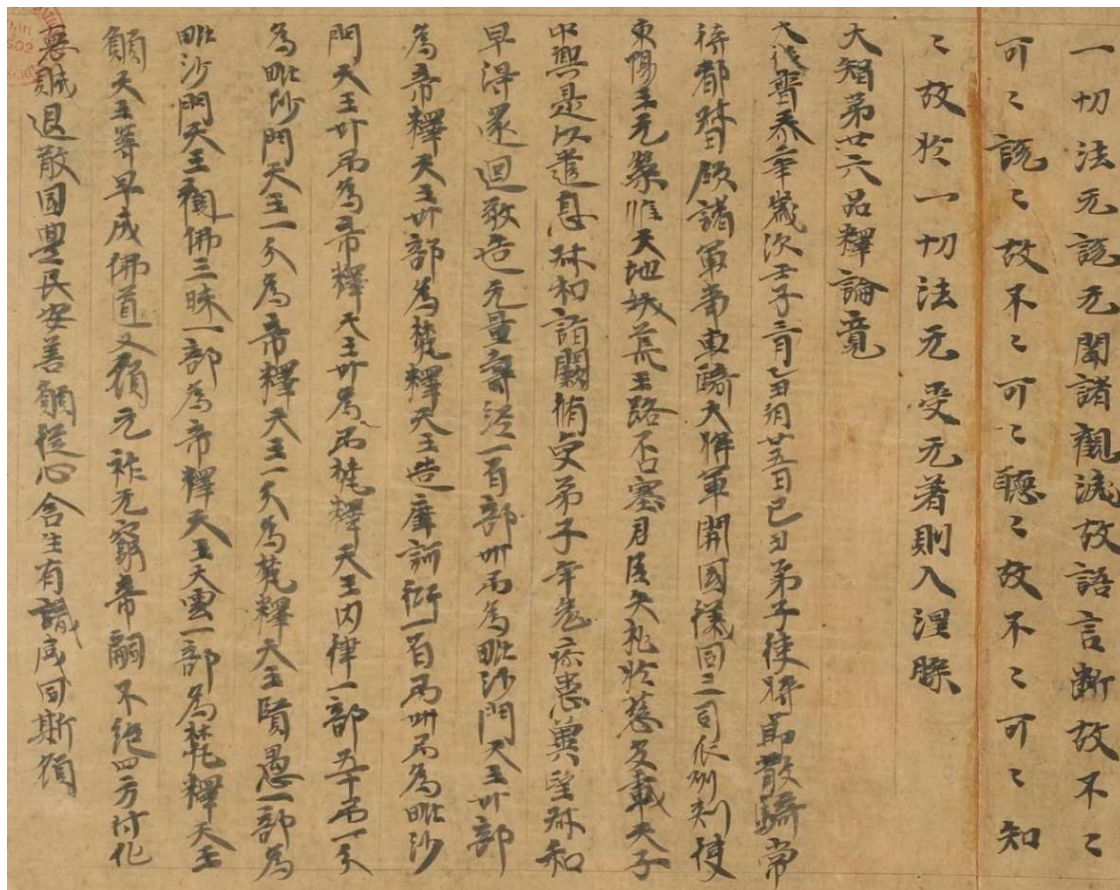 一切法无説无聞諸觀滅故語言斷故不〻
可〻説〻故不〻可〻聽〻故不〻可〻知
〻故於一切法无受无著則入涅槃
大智第廿六品釋論竟
大代普泰年歲次壬子三月乙丑朔廿五日己丑弟子使持節散騎常
侍都督領諸軍事車騎大將軍開國儀同三司瓜州刺使
東陽王元榮惟天地妖荒王路否塞君臣失礼於慈多載天子
中興是以遣息叔和詣闕脩受弟子年老疹患冀望叔和
早得還迴敬造无量壽經一百部卌弓為毗沙門天王卅部
為帝釋天王卅部為梵釋天王造摩訶衍一百弓卌弓為毗沙
門天王卅弓為帝釋天王卅弓為梵釋天王内律一部五十弓一分
為毗沙門天王一分為帝釋天王一分為梵釋天王賢愚一部為
毗沙門天王觀佛三昧一部為帝釋天王大雲一部為梵釋天王
願天王等早成佛道又願元祚无窮帝嗣不絕四方付化
惡賊退散國豐民安善願從心含生有識咸同斯願